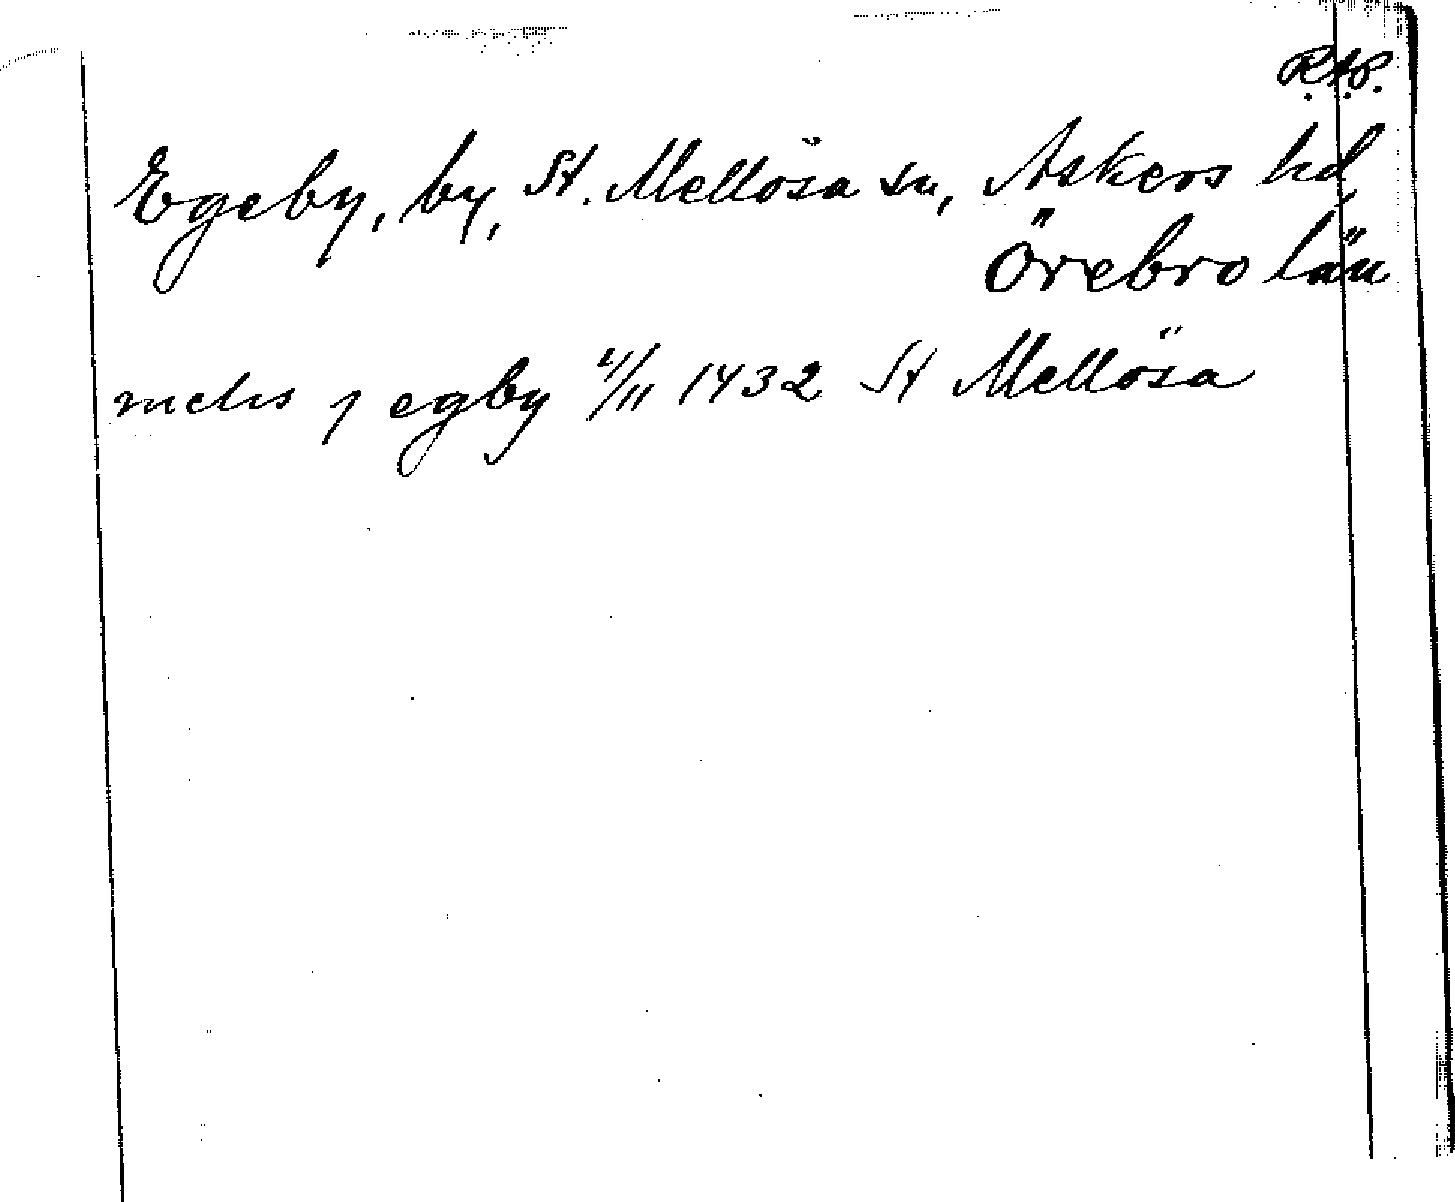 R.A.P.
Egeby, by, St. Mellösa sn, Askers hd,
Örebro län
niclis j egby /11 1432 St Mellösa